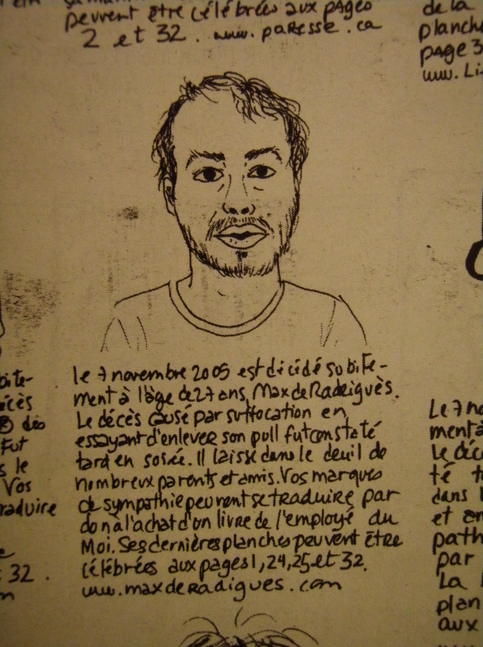 peuvent être célébrées aux pages
2 et 32. www.paresse.ca
de la
planche
page 3
www.Li
le 7 novembre 2005 est dicidé subite-
ment à l'âge de 27 ans, Max de Radeiguès.
Le décès causé par suffocation en
essayant d'enlever son pull fut constaté
tard en soirée. Il laisse dans le deuil de
nombreux parents et amis. Vos marques
de sympathie peuvent se traduire par
don a l'achat d'un livre de l'employé du
Moi. Ses dernières planches peuvent être
célébrées aux pages 1, 24, 25 et 32.
www.maxderadigues.com
bite-
écès
dés
Fut
s le
Vos
raduire
e
t 32.
m
Le 7 no
menta
Le déc
té t
dans l
et am
path
par
La l
plan
aux